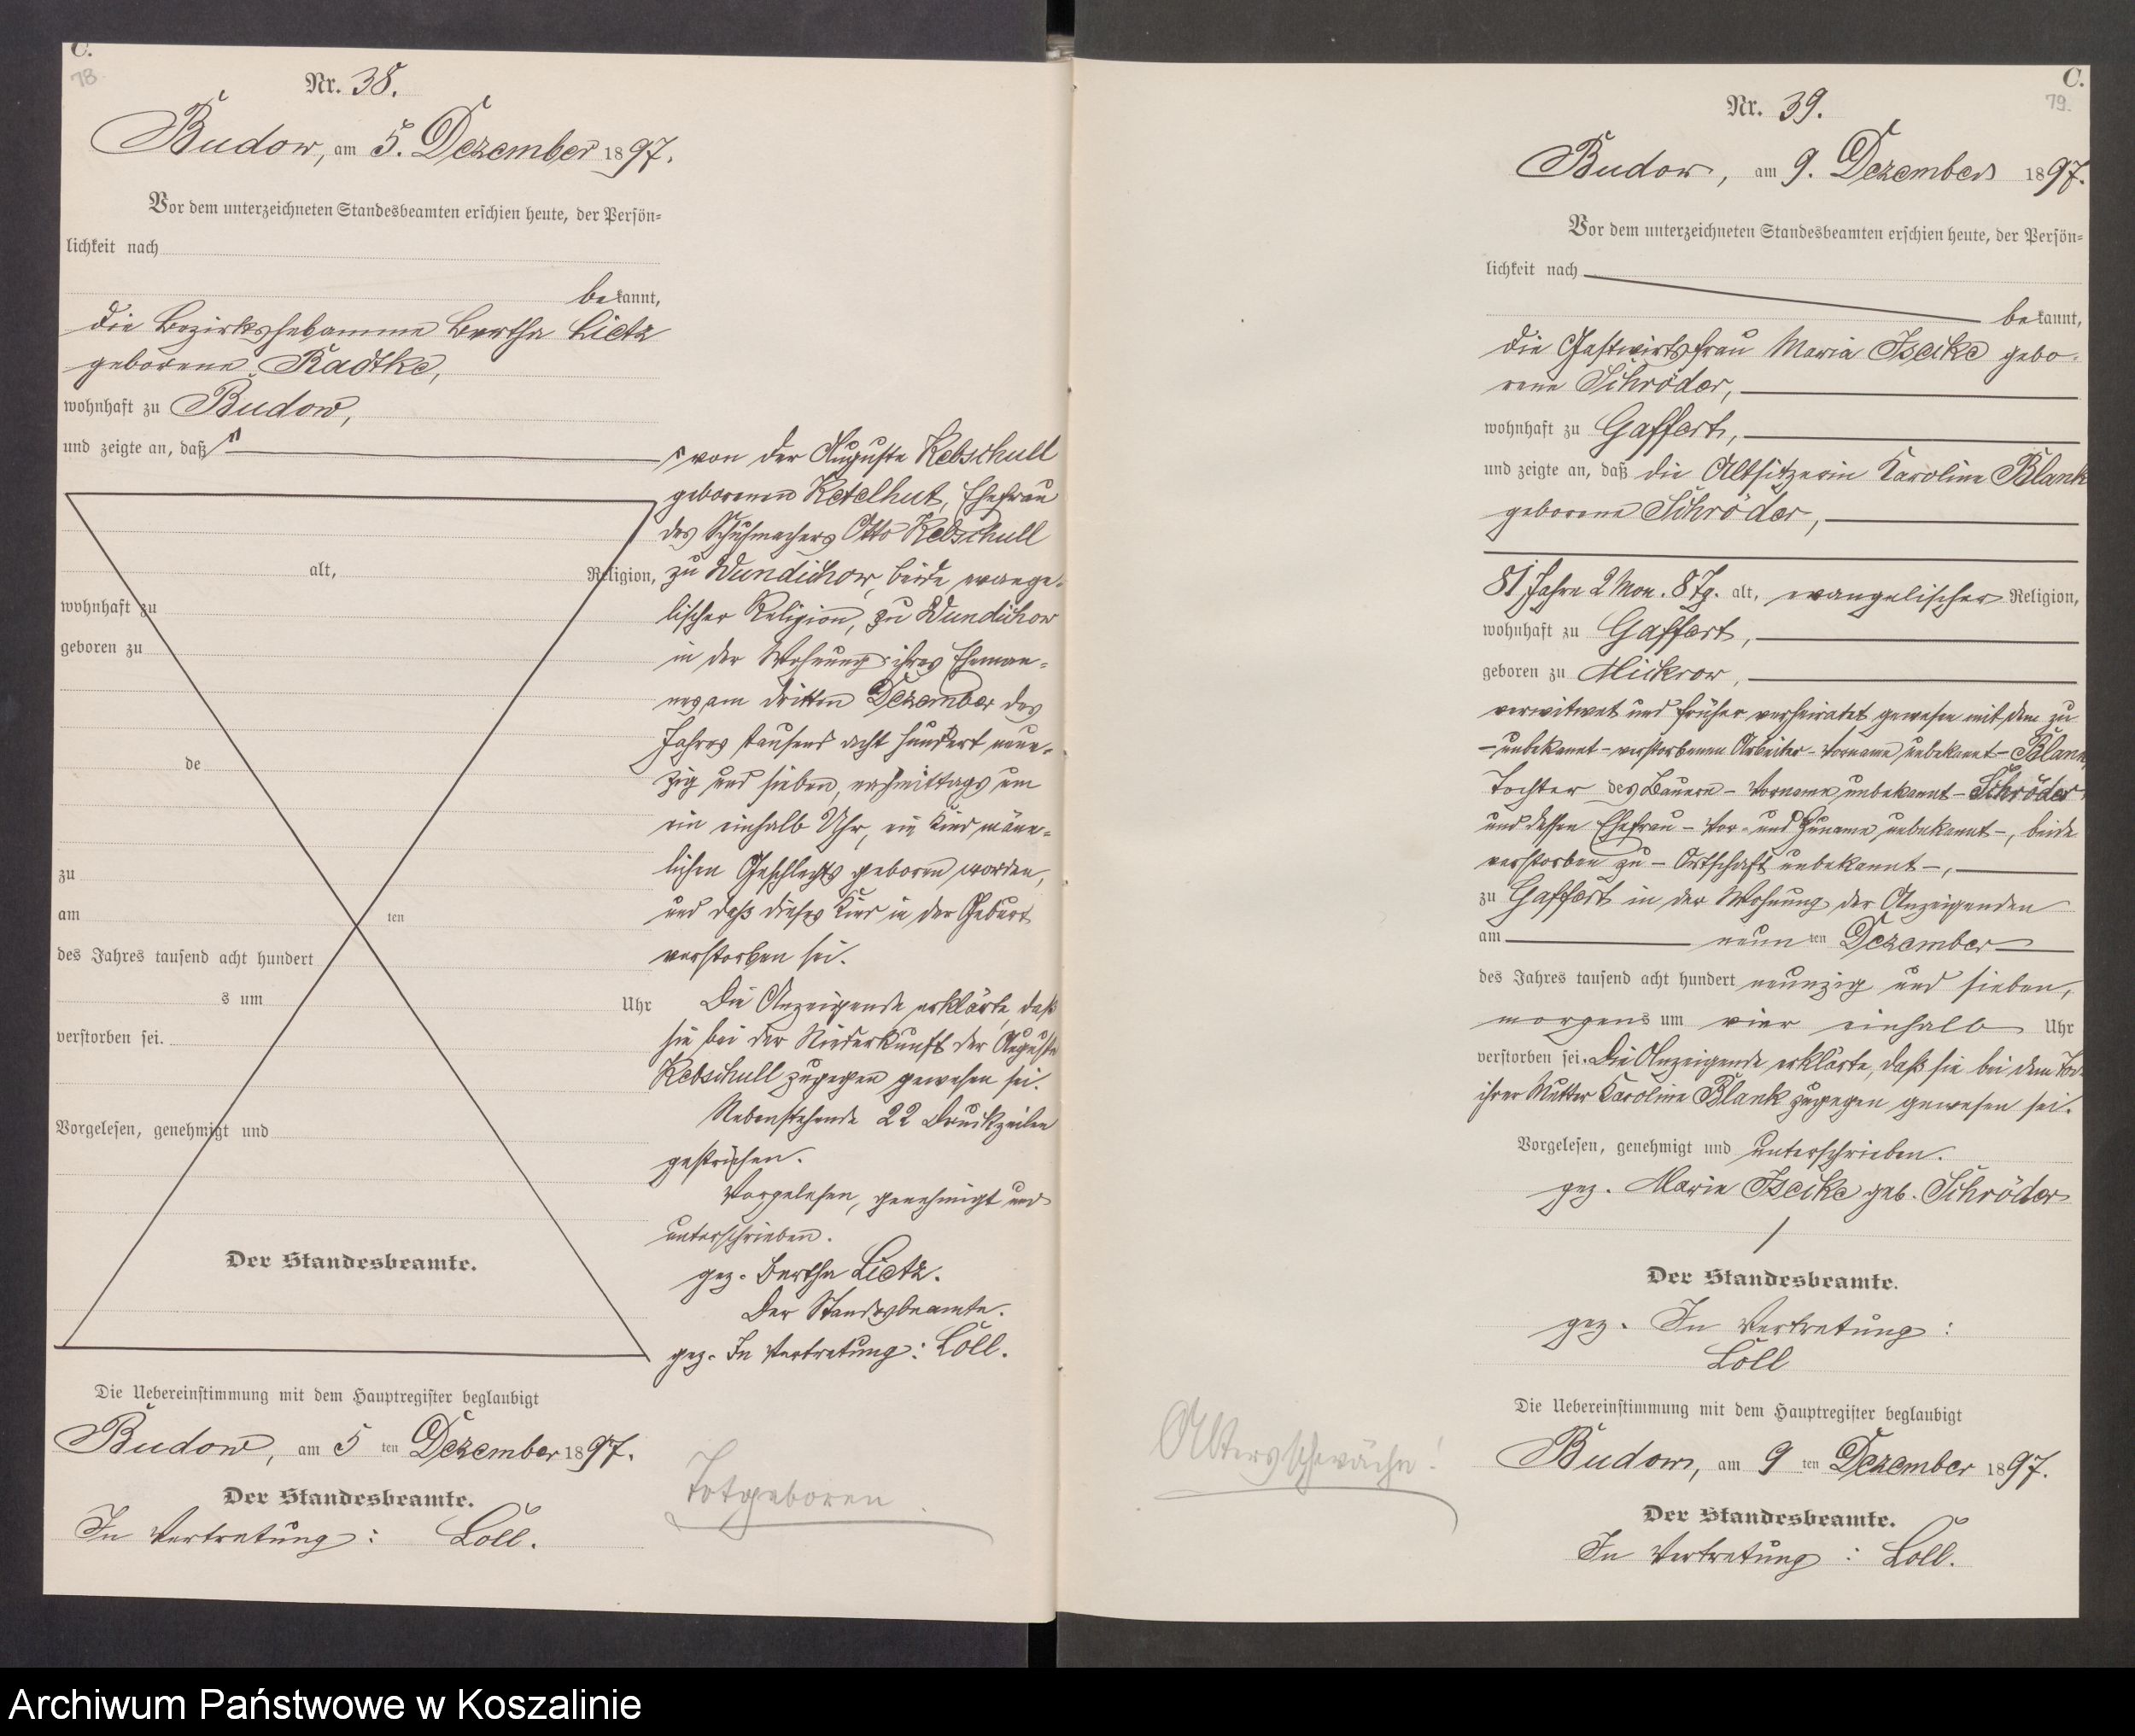 C.
78.
Nr. 38.
Budow, am 5. Dezember 1897.
Vor dem unterzeichneten Standesbeamten erschien heute, der Persön=
lichkeit nach
bekannt,
die Bezirkshebamme Bertha Lietz
geborene Radtke,
wohnhaft zu Budow,
und zeigte an, daß
alt, Religion,
wohnhaft zu
geboren zu
de
zu
am ten
des Jahres tausend acht hundert
s um Uhr
verstorben sei.
Vorgelesen, genehmigt und
Der Standesbeamte.
von der Auguste Kebschull
geborenen Ketelhut, Ehefrau
des Schuhmachers Otto Kebschull
zu Wundichow, beide evange-
lischer Religion, zu Wundichow
in der Wohnung ihres Eheman-
nes am dritten Dezember des
Jahres tausend acht hundert neun-
zig und sieben, nachmittags um
ein einhalb Uhr, ein Kind männ-
lichen Geschlechts geboren worden,
und daß dieses Kind in der Geburt
verstorben sei.
Die Anzeigende erklärte, daß
sie bei der Niederkunft der Auguste
Kebschull zugegen gewesen sei.
Nebenstehende 22 Druckzeilen
gestrichen.
Vorgelesen, genehmigt und
unterschrieben.
gez. Bertha Lietz.
Der Standesbeamte.
gez. In Vertretung: Loll.
Die Uebereinstimmung mit dem Hauptregister beglaubigt
Budow, am 5 ten Dezember 1897.
Der Standesbeamte.
In Vertretung: Loll.
Totgeboren.
C.
79.
Nr. 39.
Budow, am 9. Dezember 1897.
Vor dem unterzeichneten Standesbeamten erschien heute, der Persön=
lichkeit nach
bekannt,
die Gastwirtsfrau Maria Isecke gebo-
rene Schröder,
wohnhaft zu Gaffert,
und zeigte an, daß die Altsitzerin Karoline Blank
geborene Schröder,
81 Jahre 2 Mon. 8 Tg. alt, evangelischer Religion,
wohnhaft zu Gaffert,
geboren zu Mickrow,
verwitwet und früher verheiratet gewesen mit dem zu
- unbekannt - verstorbenen Arbeiter - Vorname unbekannt - Blank,
Tochter des Bauern - Vorname unbekannt - Schröder
und dessen Ehefrau - Vor- und Zuname unbekannt -, beide
verstorben zu - Ortschaft unbekannt -,
zu Gaffert in der Wohnung der Anzeigenden
am neun ten Dezember
des Jahres tausend acht hundert neunzig und sieben,
morgens um vier einhalb Uhr
verstorben sei. Die Anzeigende erklärte, daß sie bei dem Tode
ihrer Mutter Karoline Blank zugegen gewesen sei.
Vorgelesen, genehmigt und unterschrieben.
gez. Maria Isecke geb. Schröder
Der Standesbeamte.
gez. In Vertretung:
Loll
Die Uebereinstimmung mit dem Hauptregister beglaubigt
Budow, am 9 ten Dezember 1897.
Der Standesbeamte.
In Vertretung: Loll.
Altersschwäche!
Archiwum Państwowe w Koszalinie